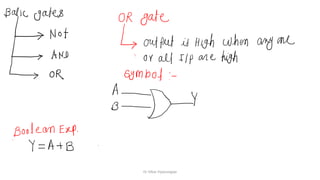 Basic gates
→ Not
→ AND
→ OR
OR gate
→ output is High when any one
or all I/p are high
Symbol :-
A
B
Y
Boolean Exp.
Y = A + B